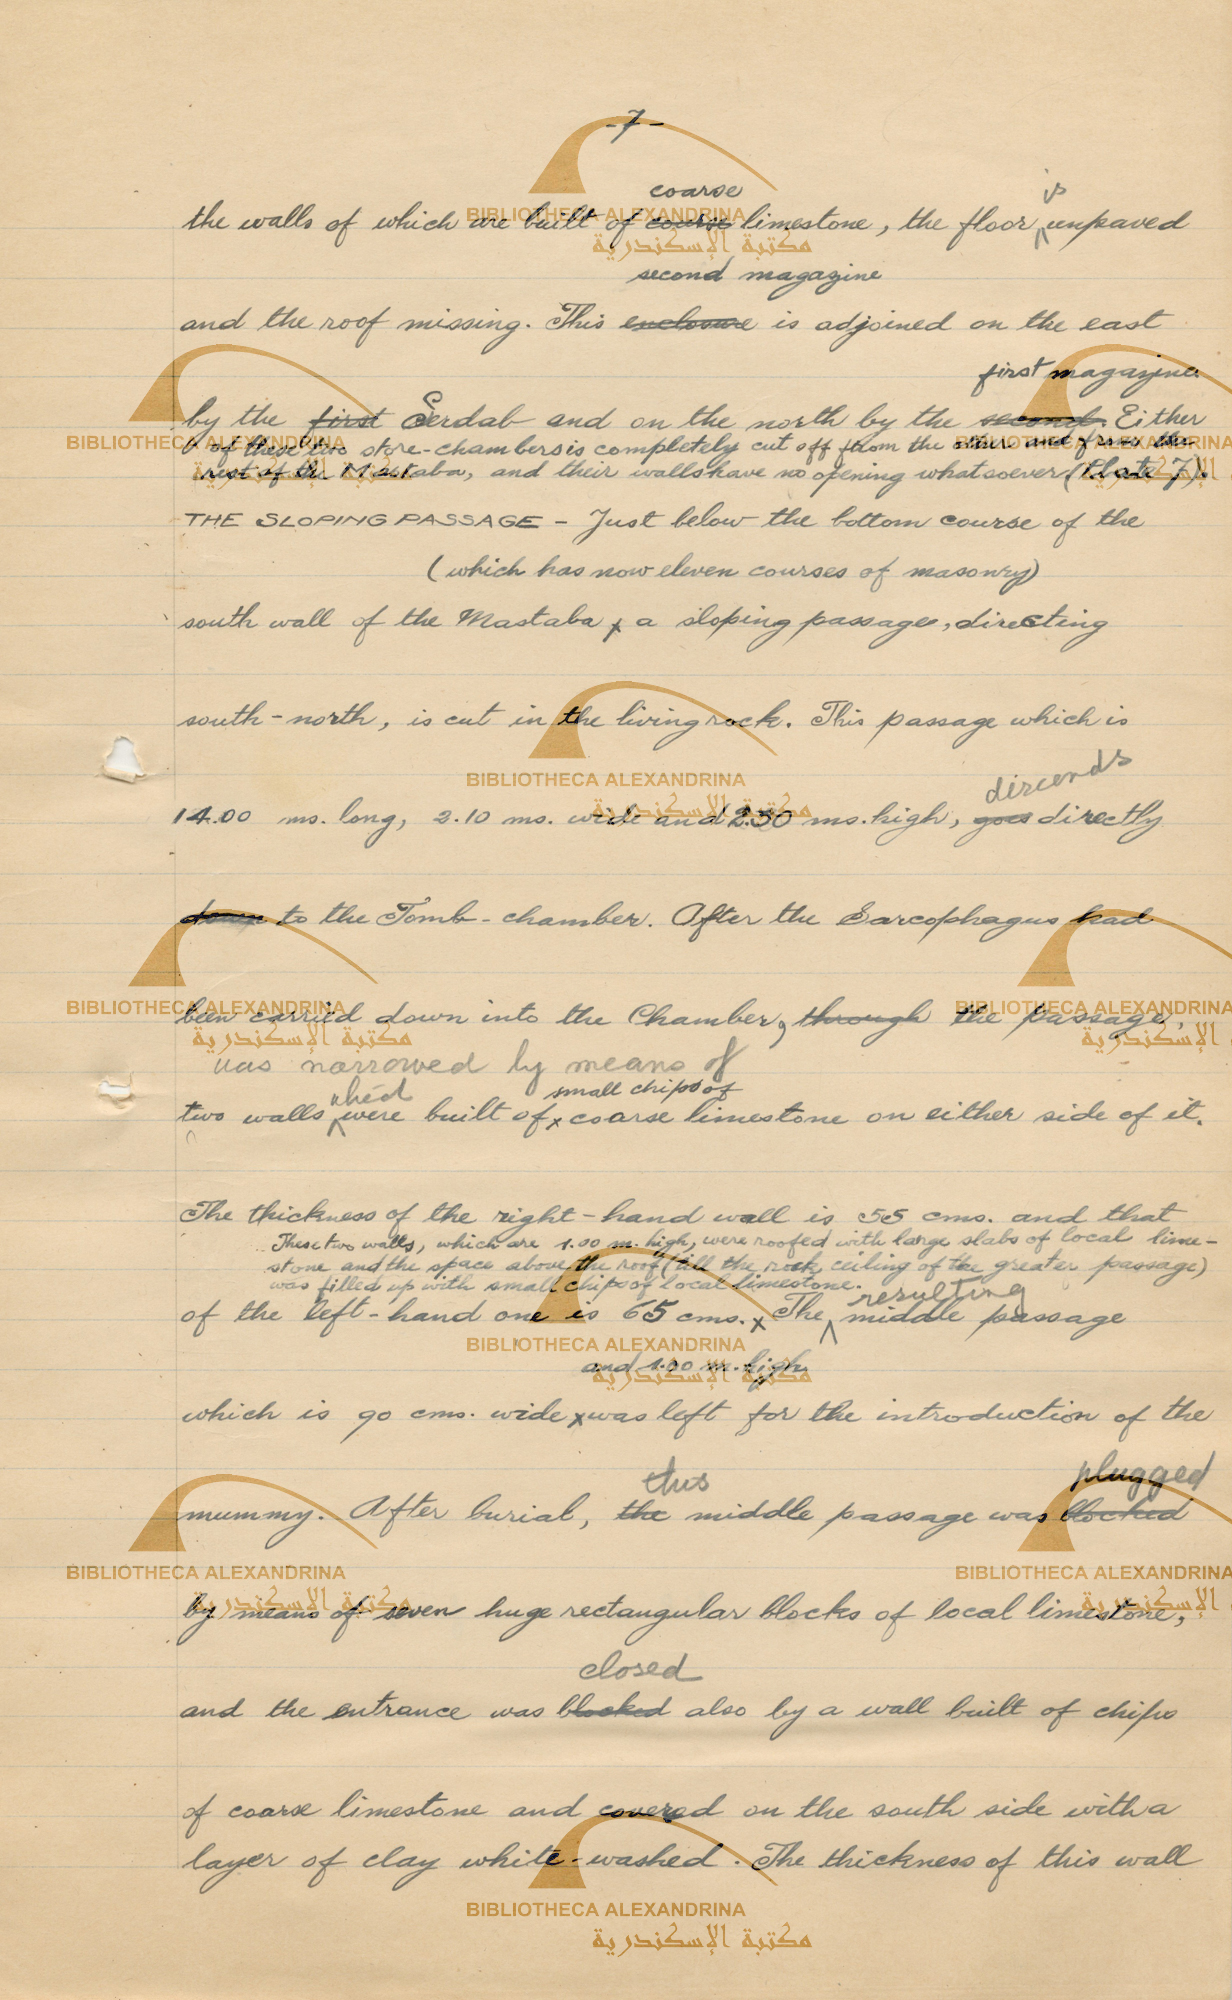 -7-
coarse is
the walls of which are built of course limestone, the floor unpaved
second magazine
and the roof missing. This enclosure is adjoined on the east
first magazine.
by the first Serdab and on the north by the second. Either
of these two store-chambers is completely cut off from the other and from the
rest of the Mastaba, and their walls have no opening whatsoever (Plate 7).
THE SLOPING PASSAGE - Just below the bottom course of the
(which has now eleven courses of masonry)
south wall of the Mastaba x a sloping passage, directing
south-north, is cut in the living rock. This passage which is
discends
14.00 ms. long, 2.10 ms. wide and 2.50 ms. high, goes directly
down to the Tomb-chamber. After the Sarcophagus had
been carried down into the Chamber, through the passage,
was narrowed by means of
small chips of
two walls were built of x coarse limestone on either side of it.
The thickness of the right-hand wall is 55 cms. and that
These two walls, which are 1.00 m. high, were roofed with large slabs of local lime-
stone and the space above the roof (till the rock ceiling of the greater passage)
was filled up with small chips of local limestone.
resulting
of the left-hand one is 65 cms. x The middle passage
and 1.00 m. high
which is 90 cms. wide x was left for the introduction of the
this plugged
mummy. After burial, the middle passage was blocked
by means of seven huge rectangular blocks of local limestone,
closed
and the entrance was blocked also by a wall built of chips
of coarse limestone and covered on the south side with a
layer of clay white-washed. The thickness of this wall
BIBLIOTHECA ALEXANDRINA
مكتبة الإسكندرية